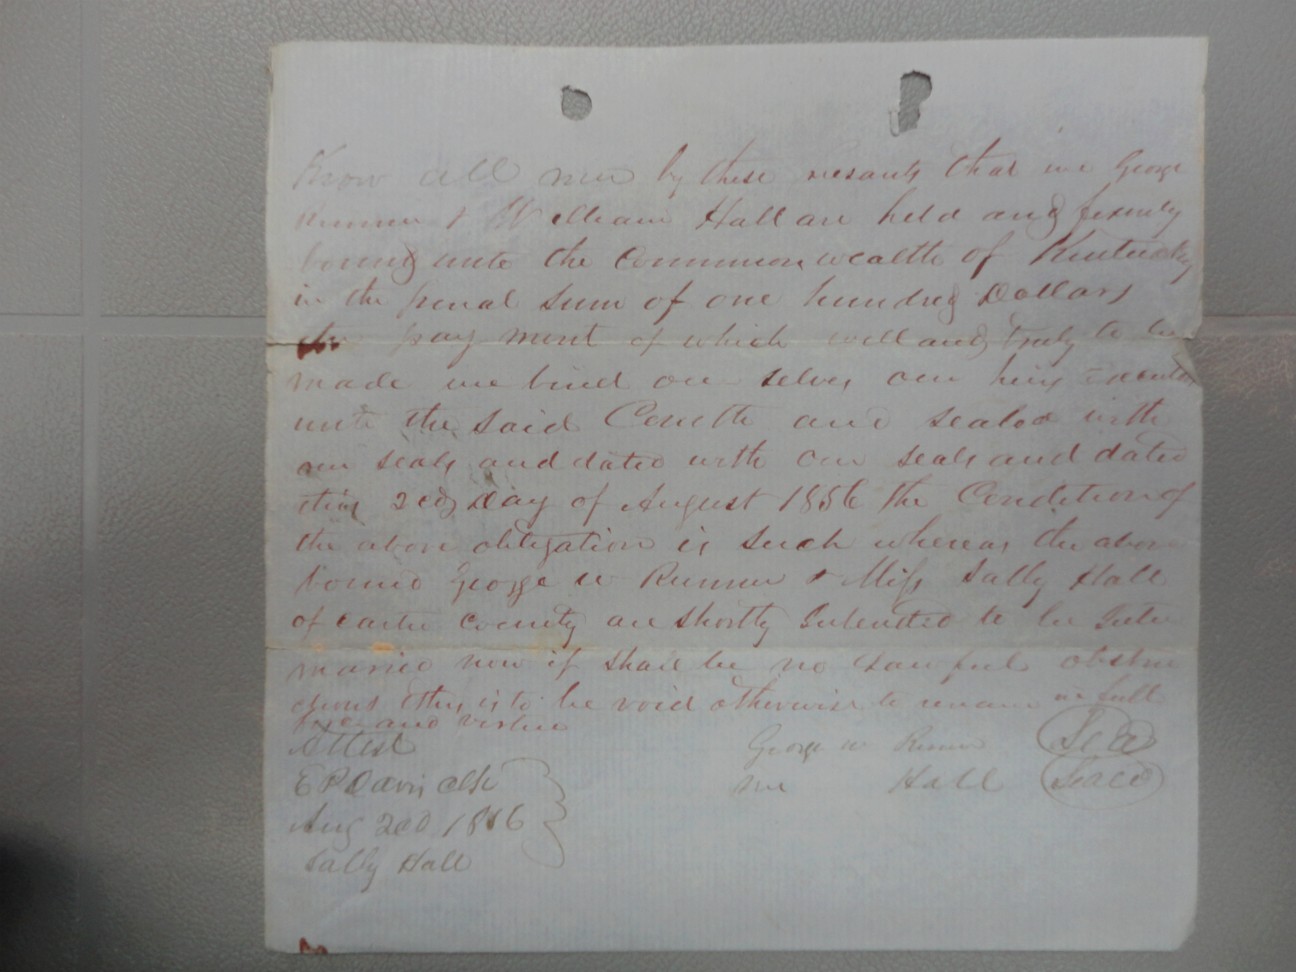 Know all men by these presants that we George
Runner & William Hall are held and firmly
bound unto the Commonwealth of Kentucky
in the penal sum of one hundred Dollars
the pay ment of which well and truly to be
made we bind our selves our heirs executors
unto the said Comlth and sealed with
our seals and dated with our seals and dated
this 2cd Day of August 1856 the Condition of
the above obligation is such whereas the above
bound George W Runner & Miss Sally Hall
of carter county are shortly Intented to be Inter
married now if shall be no Lawful obstru
ctions then is to be void otherwise to remain in full
force and virtue
Attest
George W Runner Seal
E P Davis clk
Wm Hall Seal
Aug 2cd 1856
Sally Hall